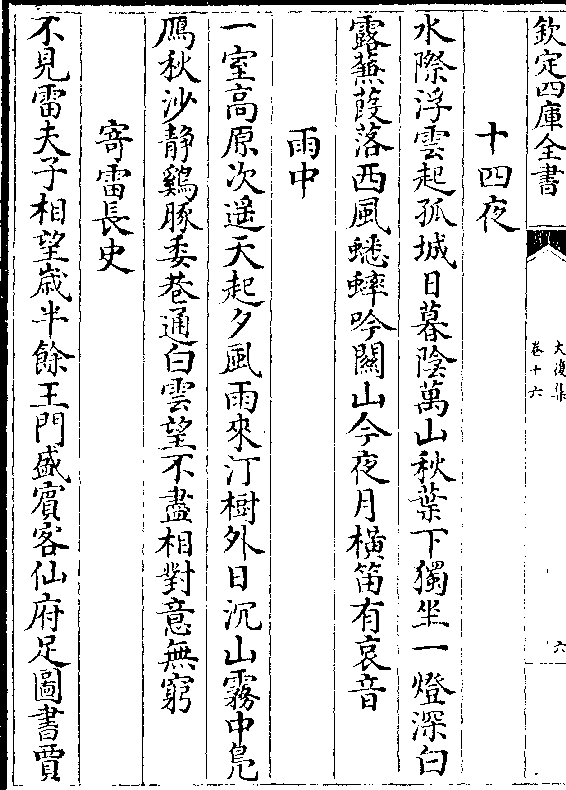 欽定四庫全書
大復集
卷十六
六
十四夜
水際浮雲起孤城日暮陰萬山秋葉下獨坐一燈深白
露蕪葭落西風蟋蟀吟關山今夜月橫笛有哀音
雨中
一室高原次遥天起夕風雨來汀樹外日沉山霧中鳧
鴈秋沙静鷄豚委巷通白雲望不盡相對意無窮
寄雷長史
不見雷夫子相望歲半餘王門盛賓客仙府足圖書賈